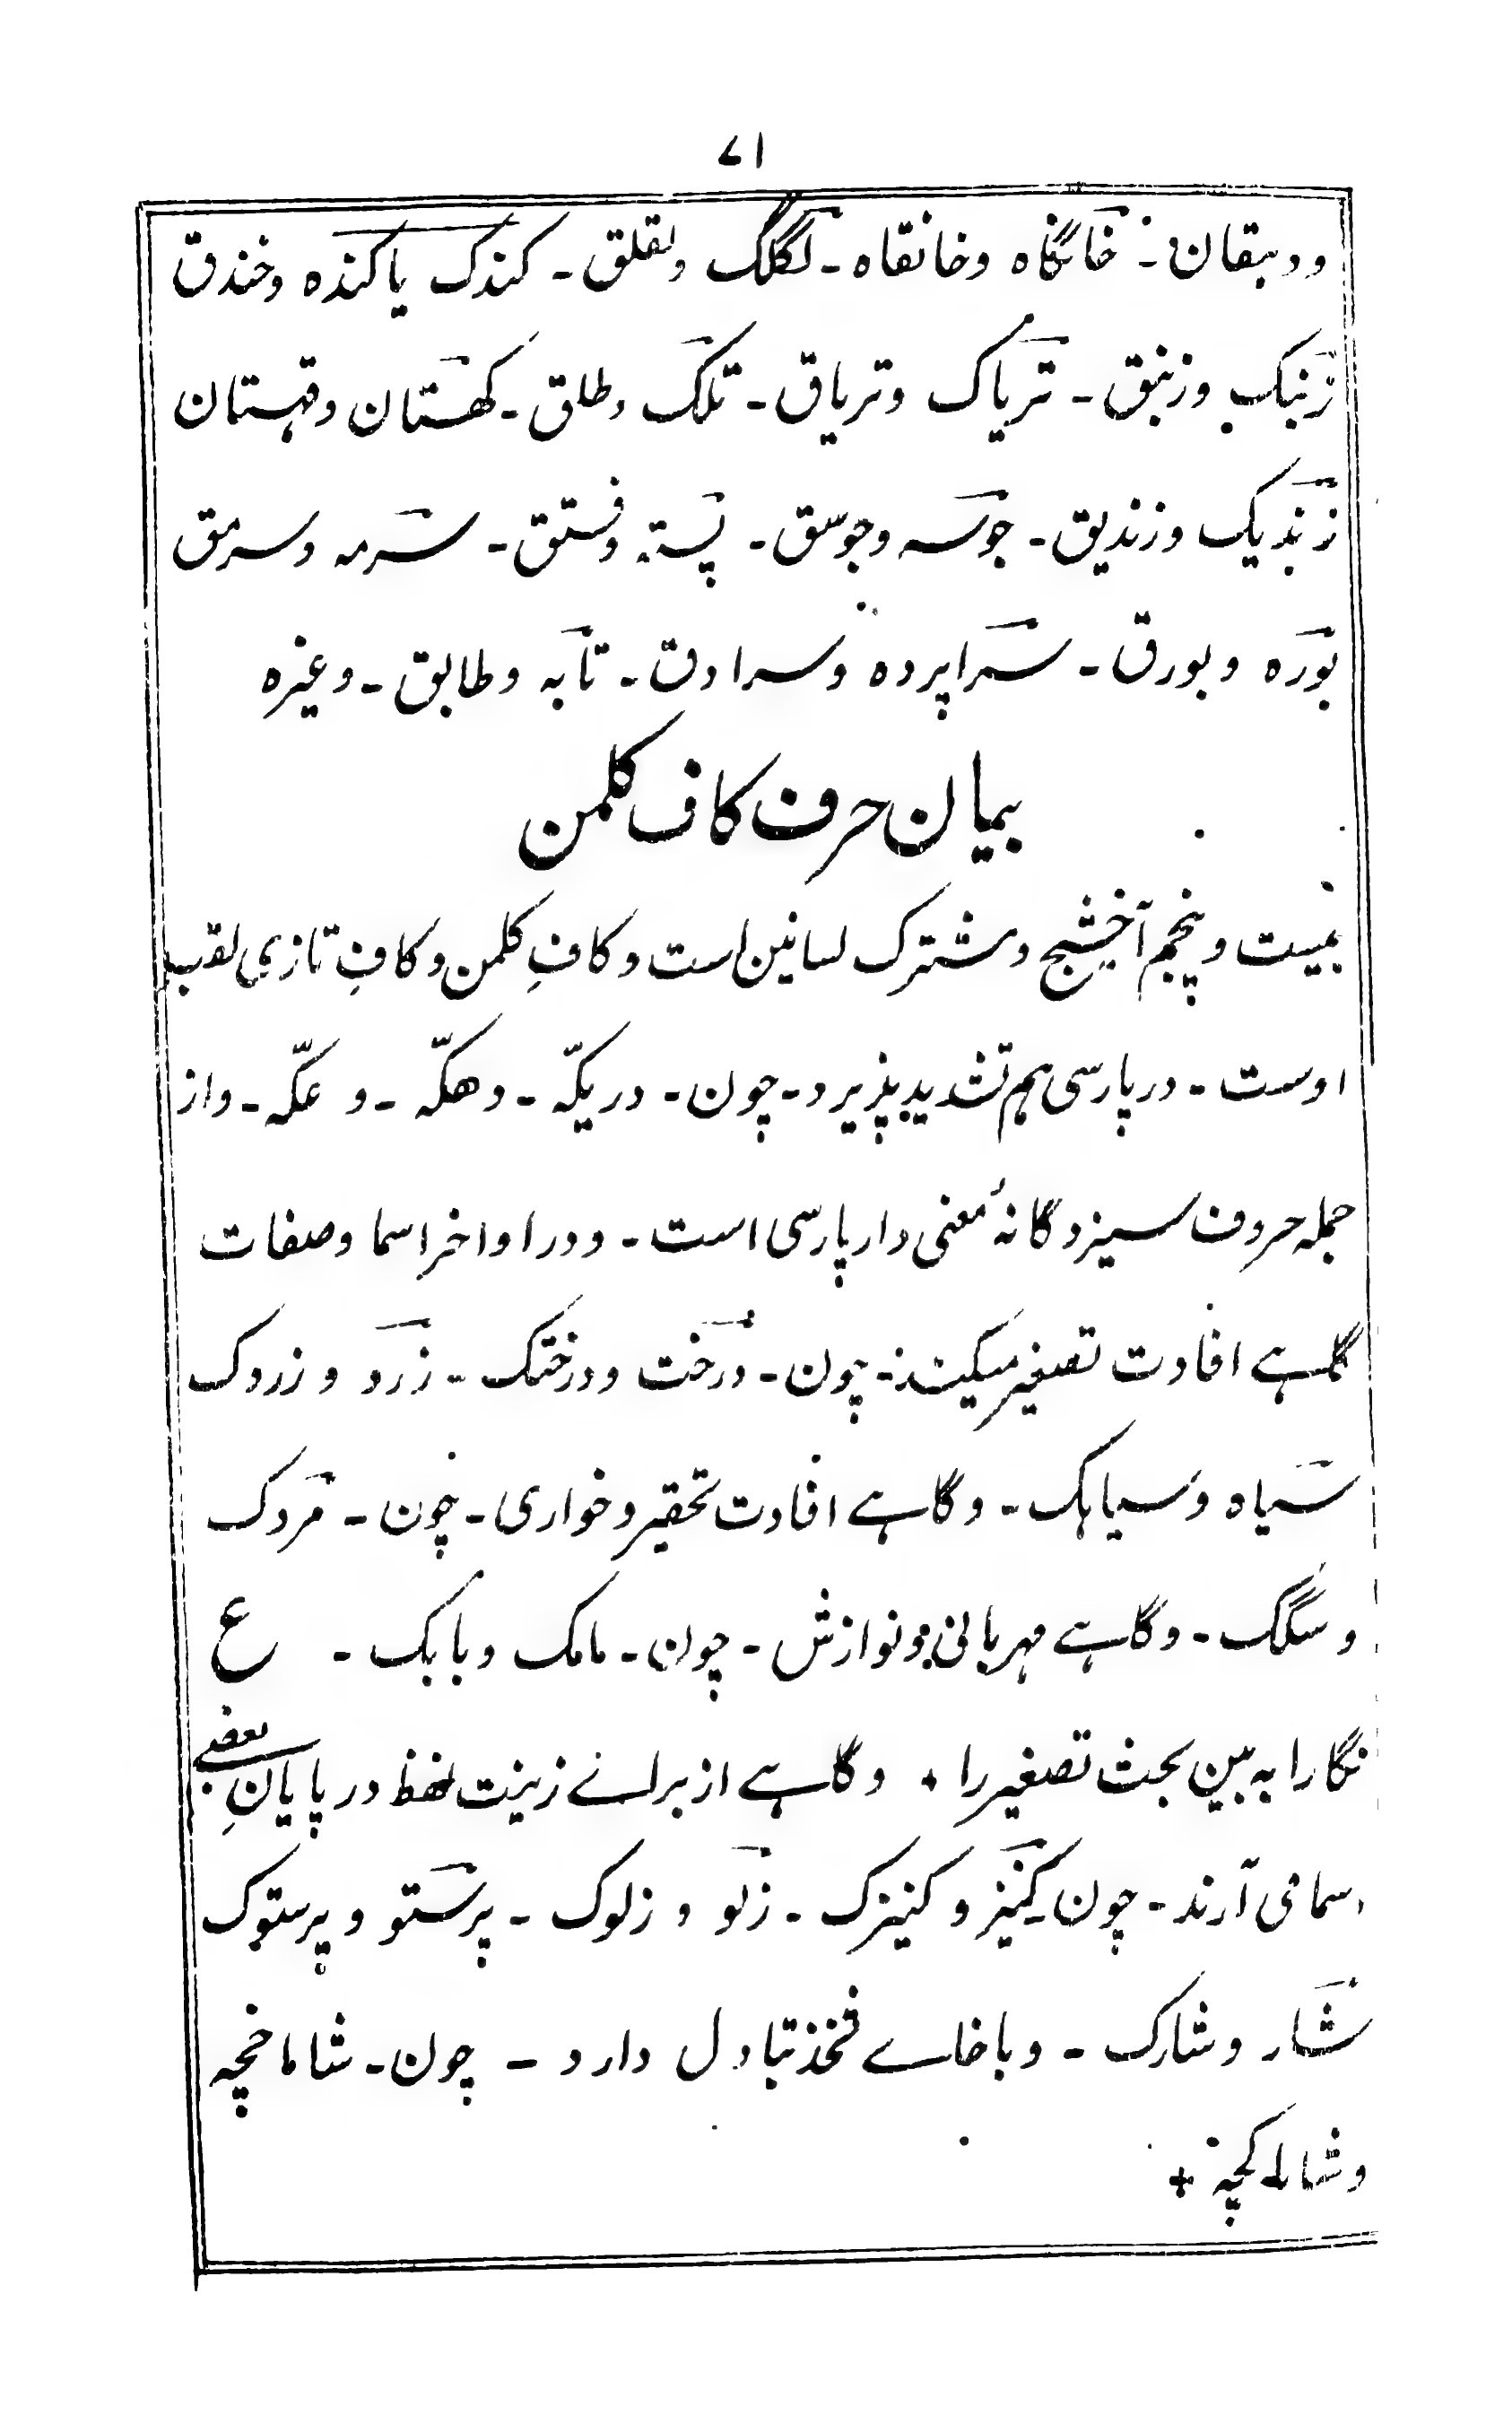 ۷۱
ودہقان ۔ خانگاہ وخانقاہ ۔ لکلک ولقلق ۔ کندک یا کندہ وخندق
زنبک وزنبق ۔ تریاک وتریاق ۔ تلک وطلق ۔ کهستان وقہستان
زندیک وزندیق ۔ جوسہ وجوسق ۔ پستہ وفستق ۔ سرمہ وسرمق
بورہ وبورق ۔ سراپردہ وسرادق ۔ تابہ وطابق ۔ وغیرہ
بیان حرف کاف کلمن
بیست وپنجم آخشیج ومشترک لسانین است وکافِ کلمن وکافِ تازی لقب
اوست ۔ در پارسی ہم تشدید پذیرد ۔ چون ۔ دریکّہ ۔ دهکّہ ۔ و عکّہ ۔ واز
جملہ حروف سیزدگانۂ معنی دار پارسی است ۔ ودر اواخر اسما وصفات
گاہے افادت تصغیر میکند ۔ چون ۔ درخت ودرختک ۔ زرد و زردک
سیاہ وسیاہک ۔ وگاہے افادت تحقیر وخواری ۔ چون ۔ مردک
وسگک ۔ وگاہے مہربانی ونوازش ۔ چون ۔ مامک وبابک ۔ ع
نگارا بہ بین بحث تصغیر را + وگاہے از برائے زینت لفظ در پایانِ بعضے
اسما می آرند ۔ چون کنیز و کنیزک ۔ زلو و زلوک ۔ پرستو و پرستوک
شار وشارک ۔ وباخاے فخذ تبادل دارد ۔ چون ۔ شاماخچہ
وشاماکچہ +